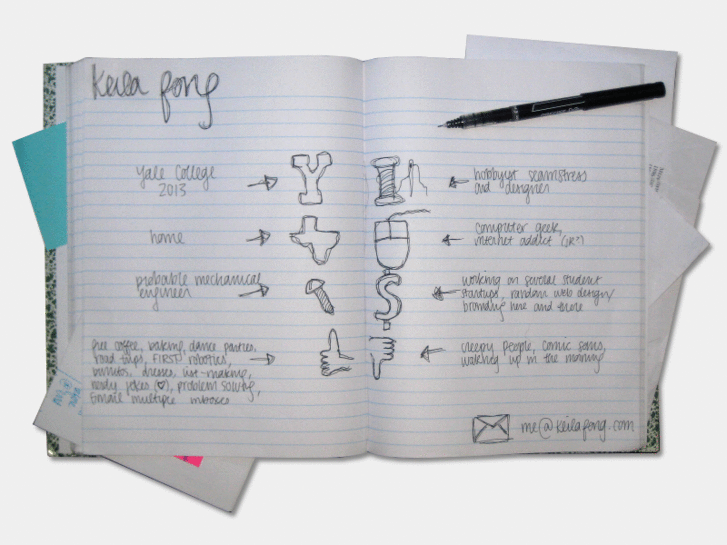 Keila Fong
Yale College
2013
Y
hobbyist seamstress
and designer
home
computer geek,
internet addict
probable mechanical
engineer
$
working on several student
startups, random web design/
branding here and there
free coffee, baking, dance parties,
road trips, FIRST robotics,
burritos, dresses, list-making,
nerdy jokes (♥), problem solving,
Gmail multiple inboxes
creepy people, comic sans,
waking up in the morning
me@keilafong.com